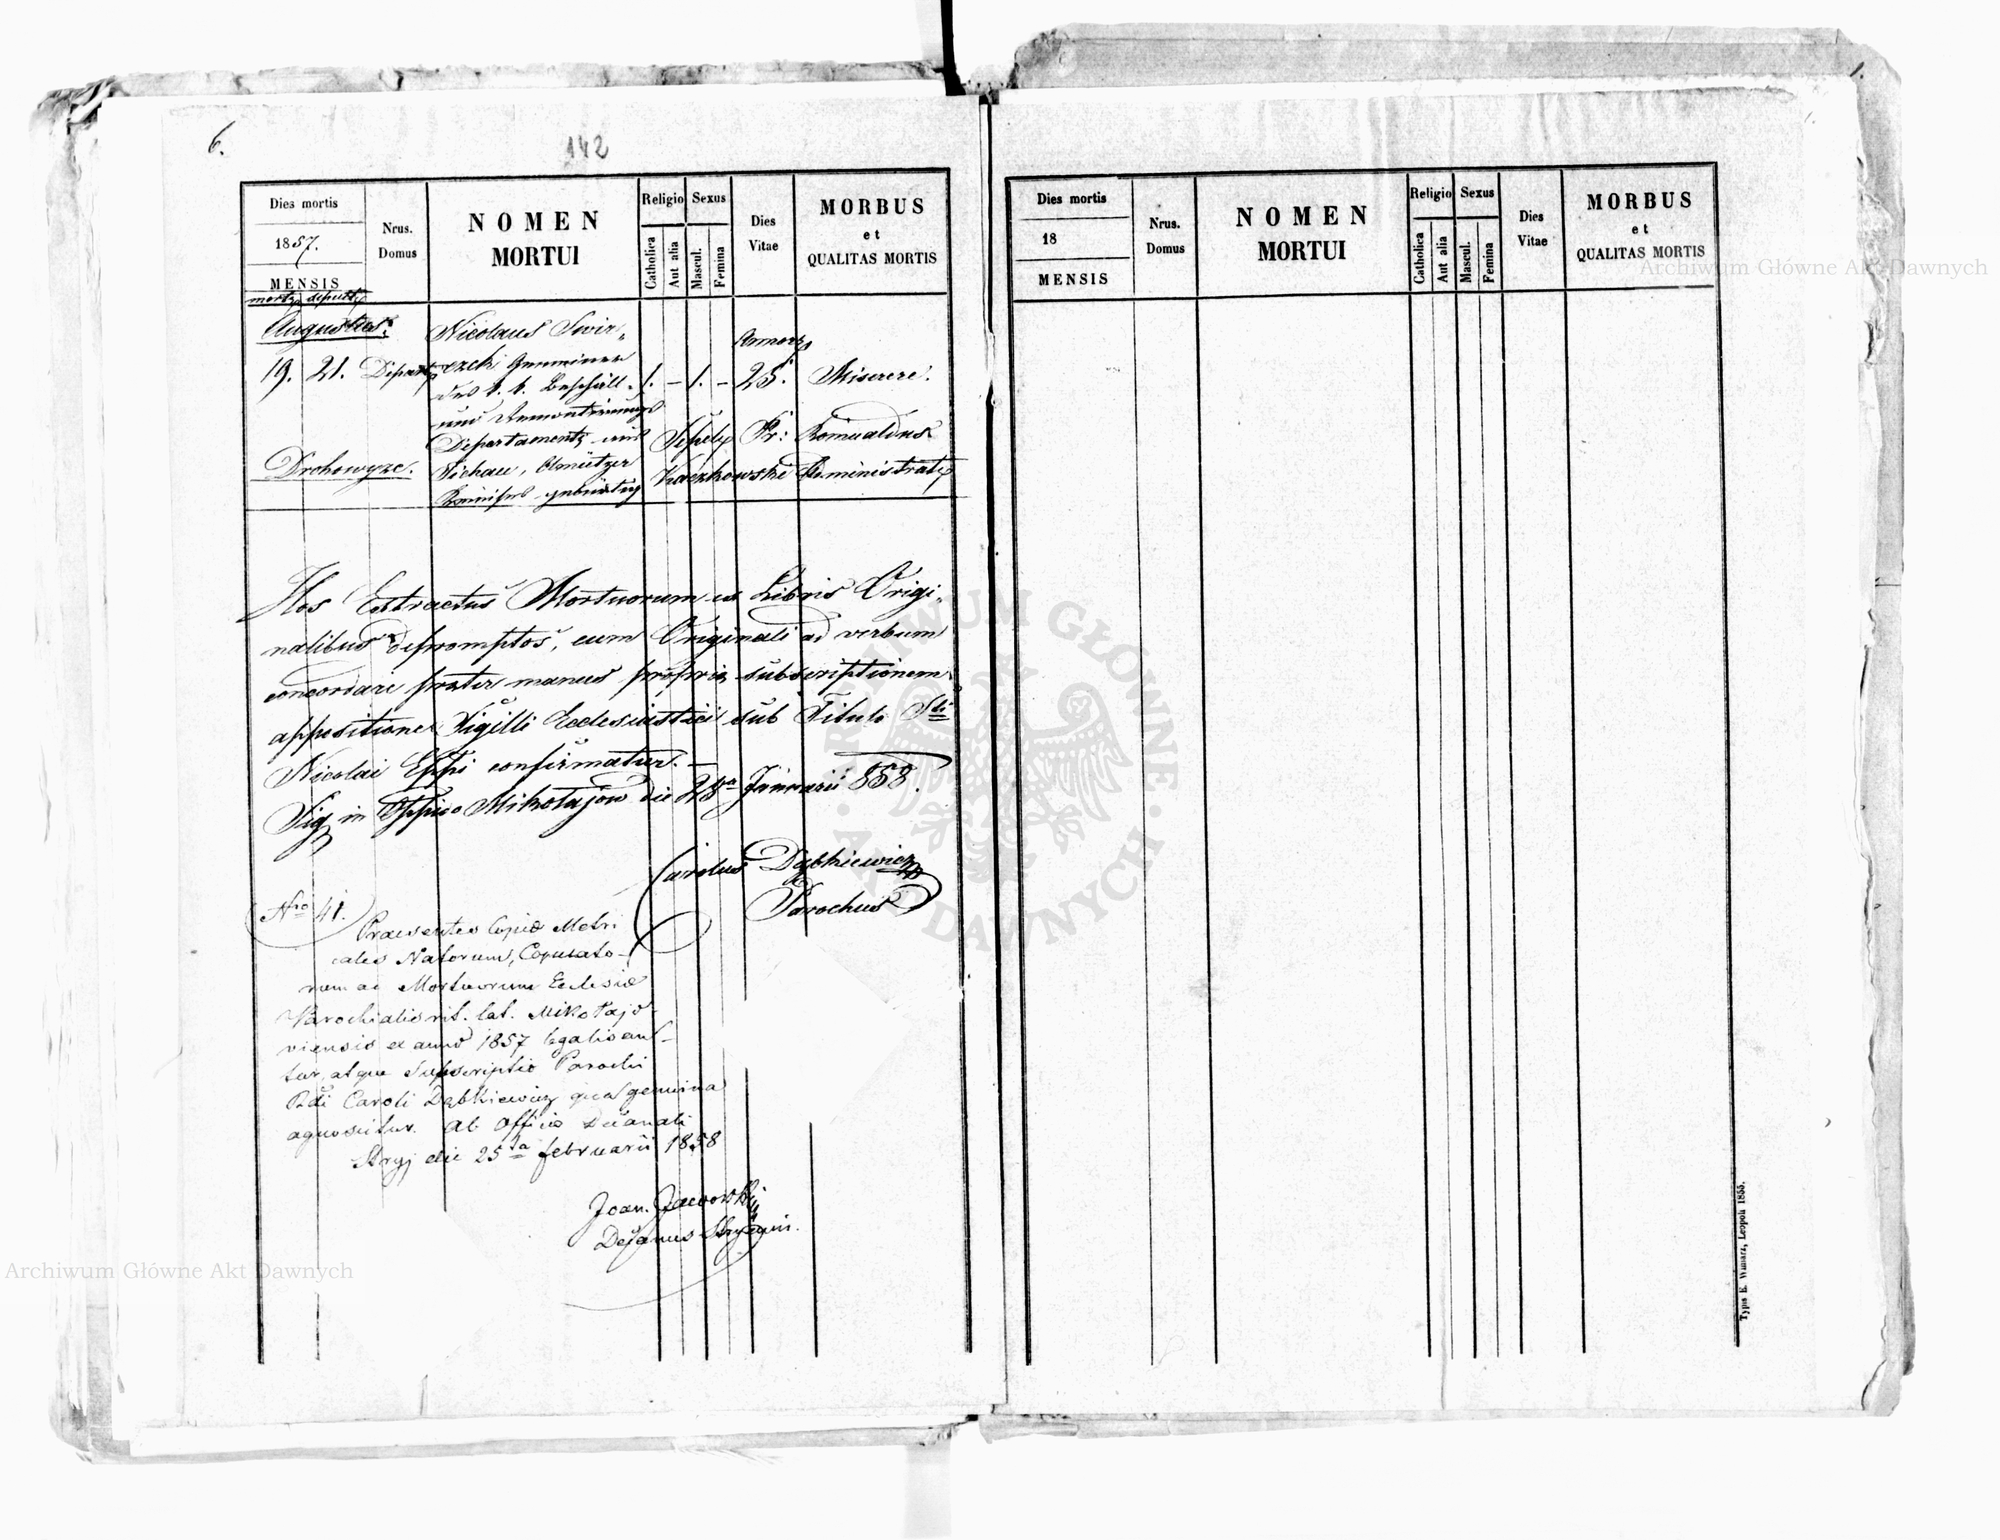 6.
142
Dies mortis
1857.
MENSIS
Nrus.
Domus
NOMEN
MORTUI
Religio
Sexus
Catholica
Aut alia
Mascul.
Femina
Dies
Vitae
MORBUS
et
QUALITAS MORTIS
Augustus
Nicolaus Swir„
Annorz
19. 21. Depart 1. – 1. – 25. Miserere.
des k. k. Beschäll„
und Remontirungs
Departaments aus
Sepely Pr: Romualdus
Drohowyze.
Tichau, Olmützer
Kaczkowski Administratz
Kreises gebürtig
Hos Extractus Mortuorum ex Libris Origi„
nalibus depromptos, cum Originali ad verbum
concordare praeter manus propriae subscriptionem
appositione Sigilli Ecclesiastici sub Titulo Sti
Nicolai Eppi confirmatur. –
Sig in Oppido Mikołajow die 28va Januarii 858.
Carolus Dąbkiewicz
Parochus
Nro 41.
Praesentes Copiae Metri
cales Natorum, Copulato–
rum ac Mortuorum Ecclesiae
Parochialis rit. lat. Mikołajo–
viensis ex anno 1857 legalisan–
tur, atque Subscriptio Parochi
Rdi Caroli Dąbkiewicz qua genuina
agnoscitur. Ab Officio Decanali
Stryj die 25ta februarii 1858
Joan. Jaworski
Decanus Stryien.
Dies mortis
18
MENSIS
Nrus.
Domus
NOMEN
MORTUI
Religio
Sexus
Catholica
Aut alia
Mascul.
Femina
Dies
Vitae
MORBUS
et
QUALITAS MORTIS
Typis E. Winiarz, Leopoli 1855.
Archiwum Główne Akt Dawnych
ARCHIWUM GŁÓWNE · AKT DAWNYCH ·
Archiwum Główne Akt Dawnych